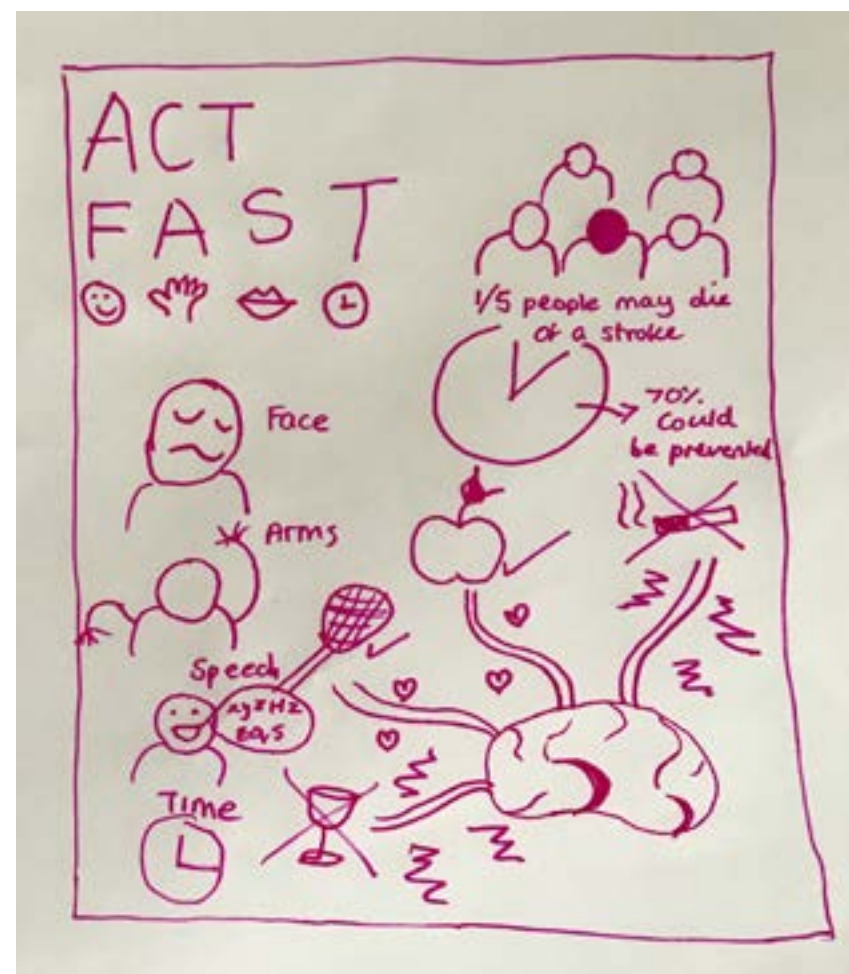 ACT
FAST
1/5 people may die
of a stroke
70%
Could
be prevented
Face
Arms
Speech
Time